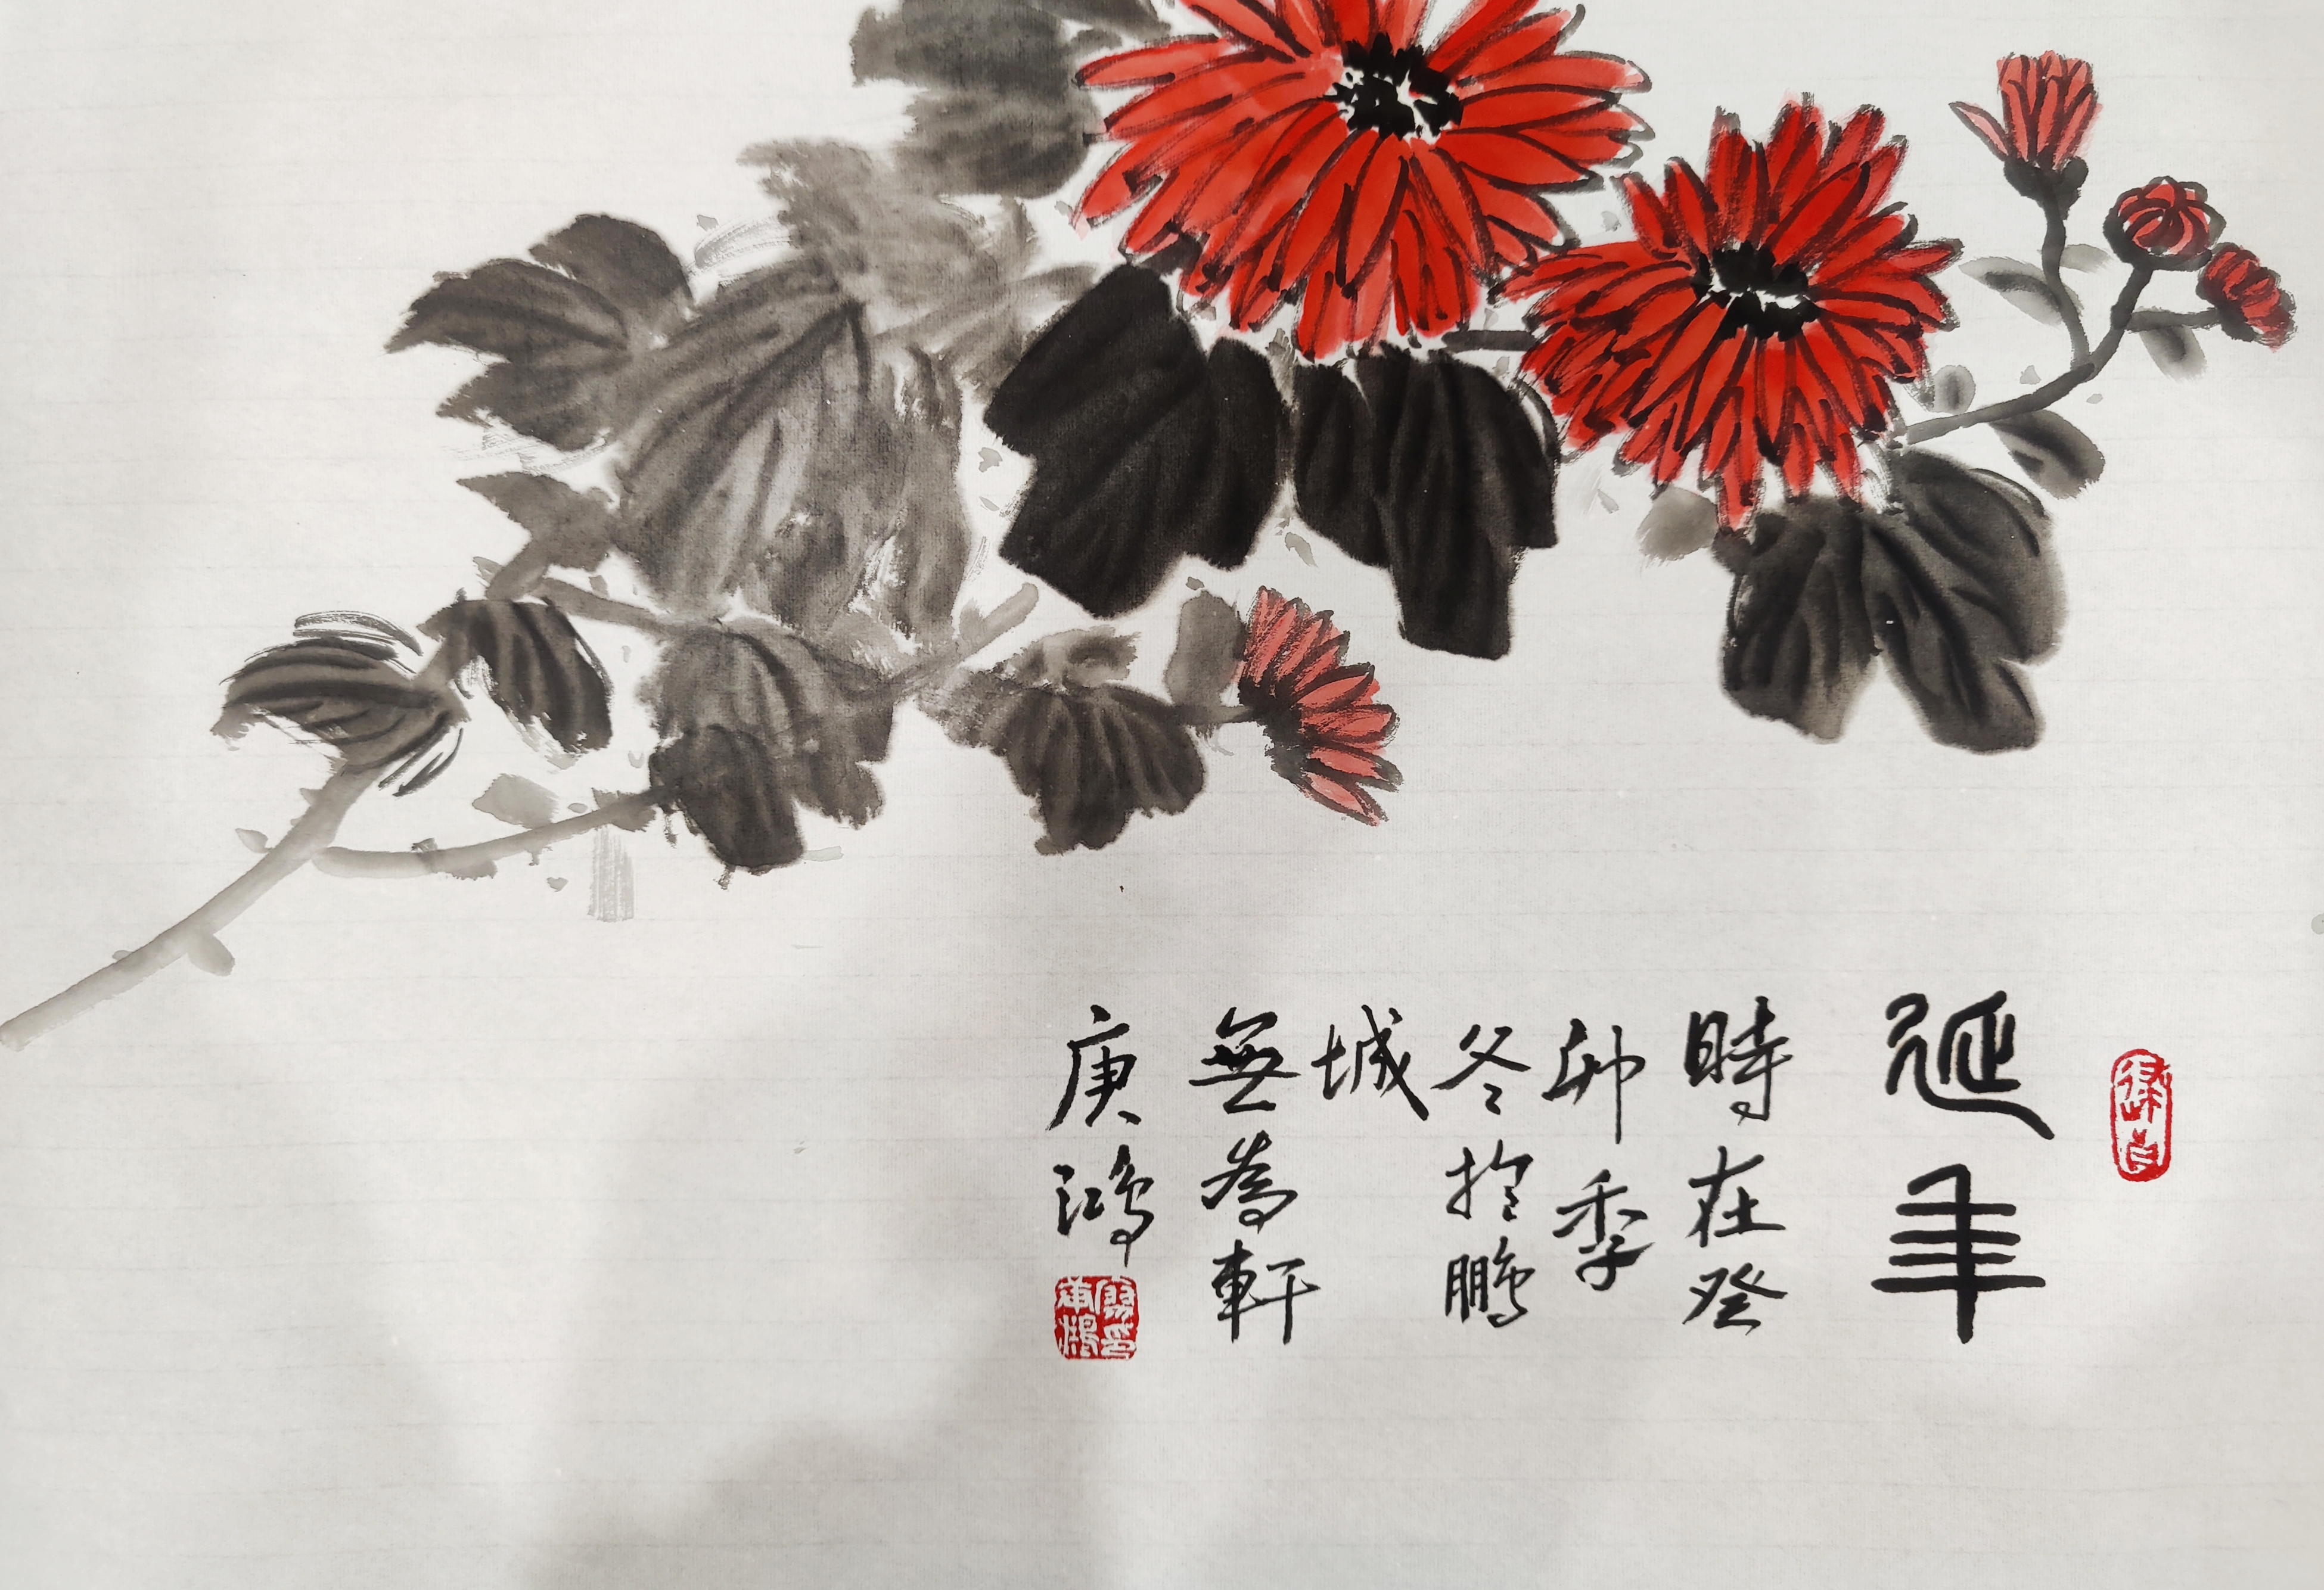 延年
時在癸
卯季
冬於鵬
城
無為軒
庚鴻